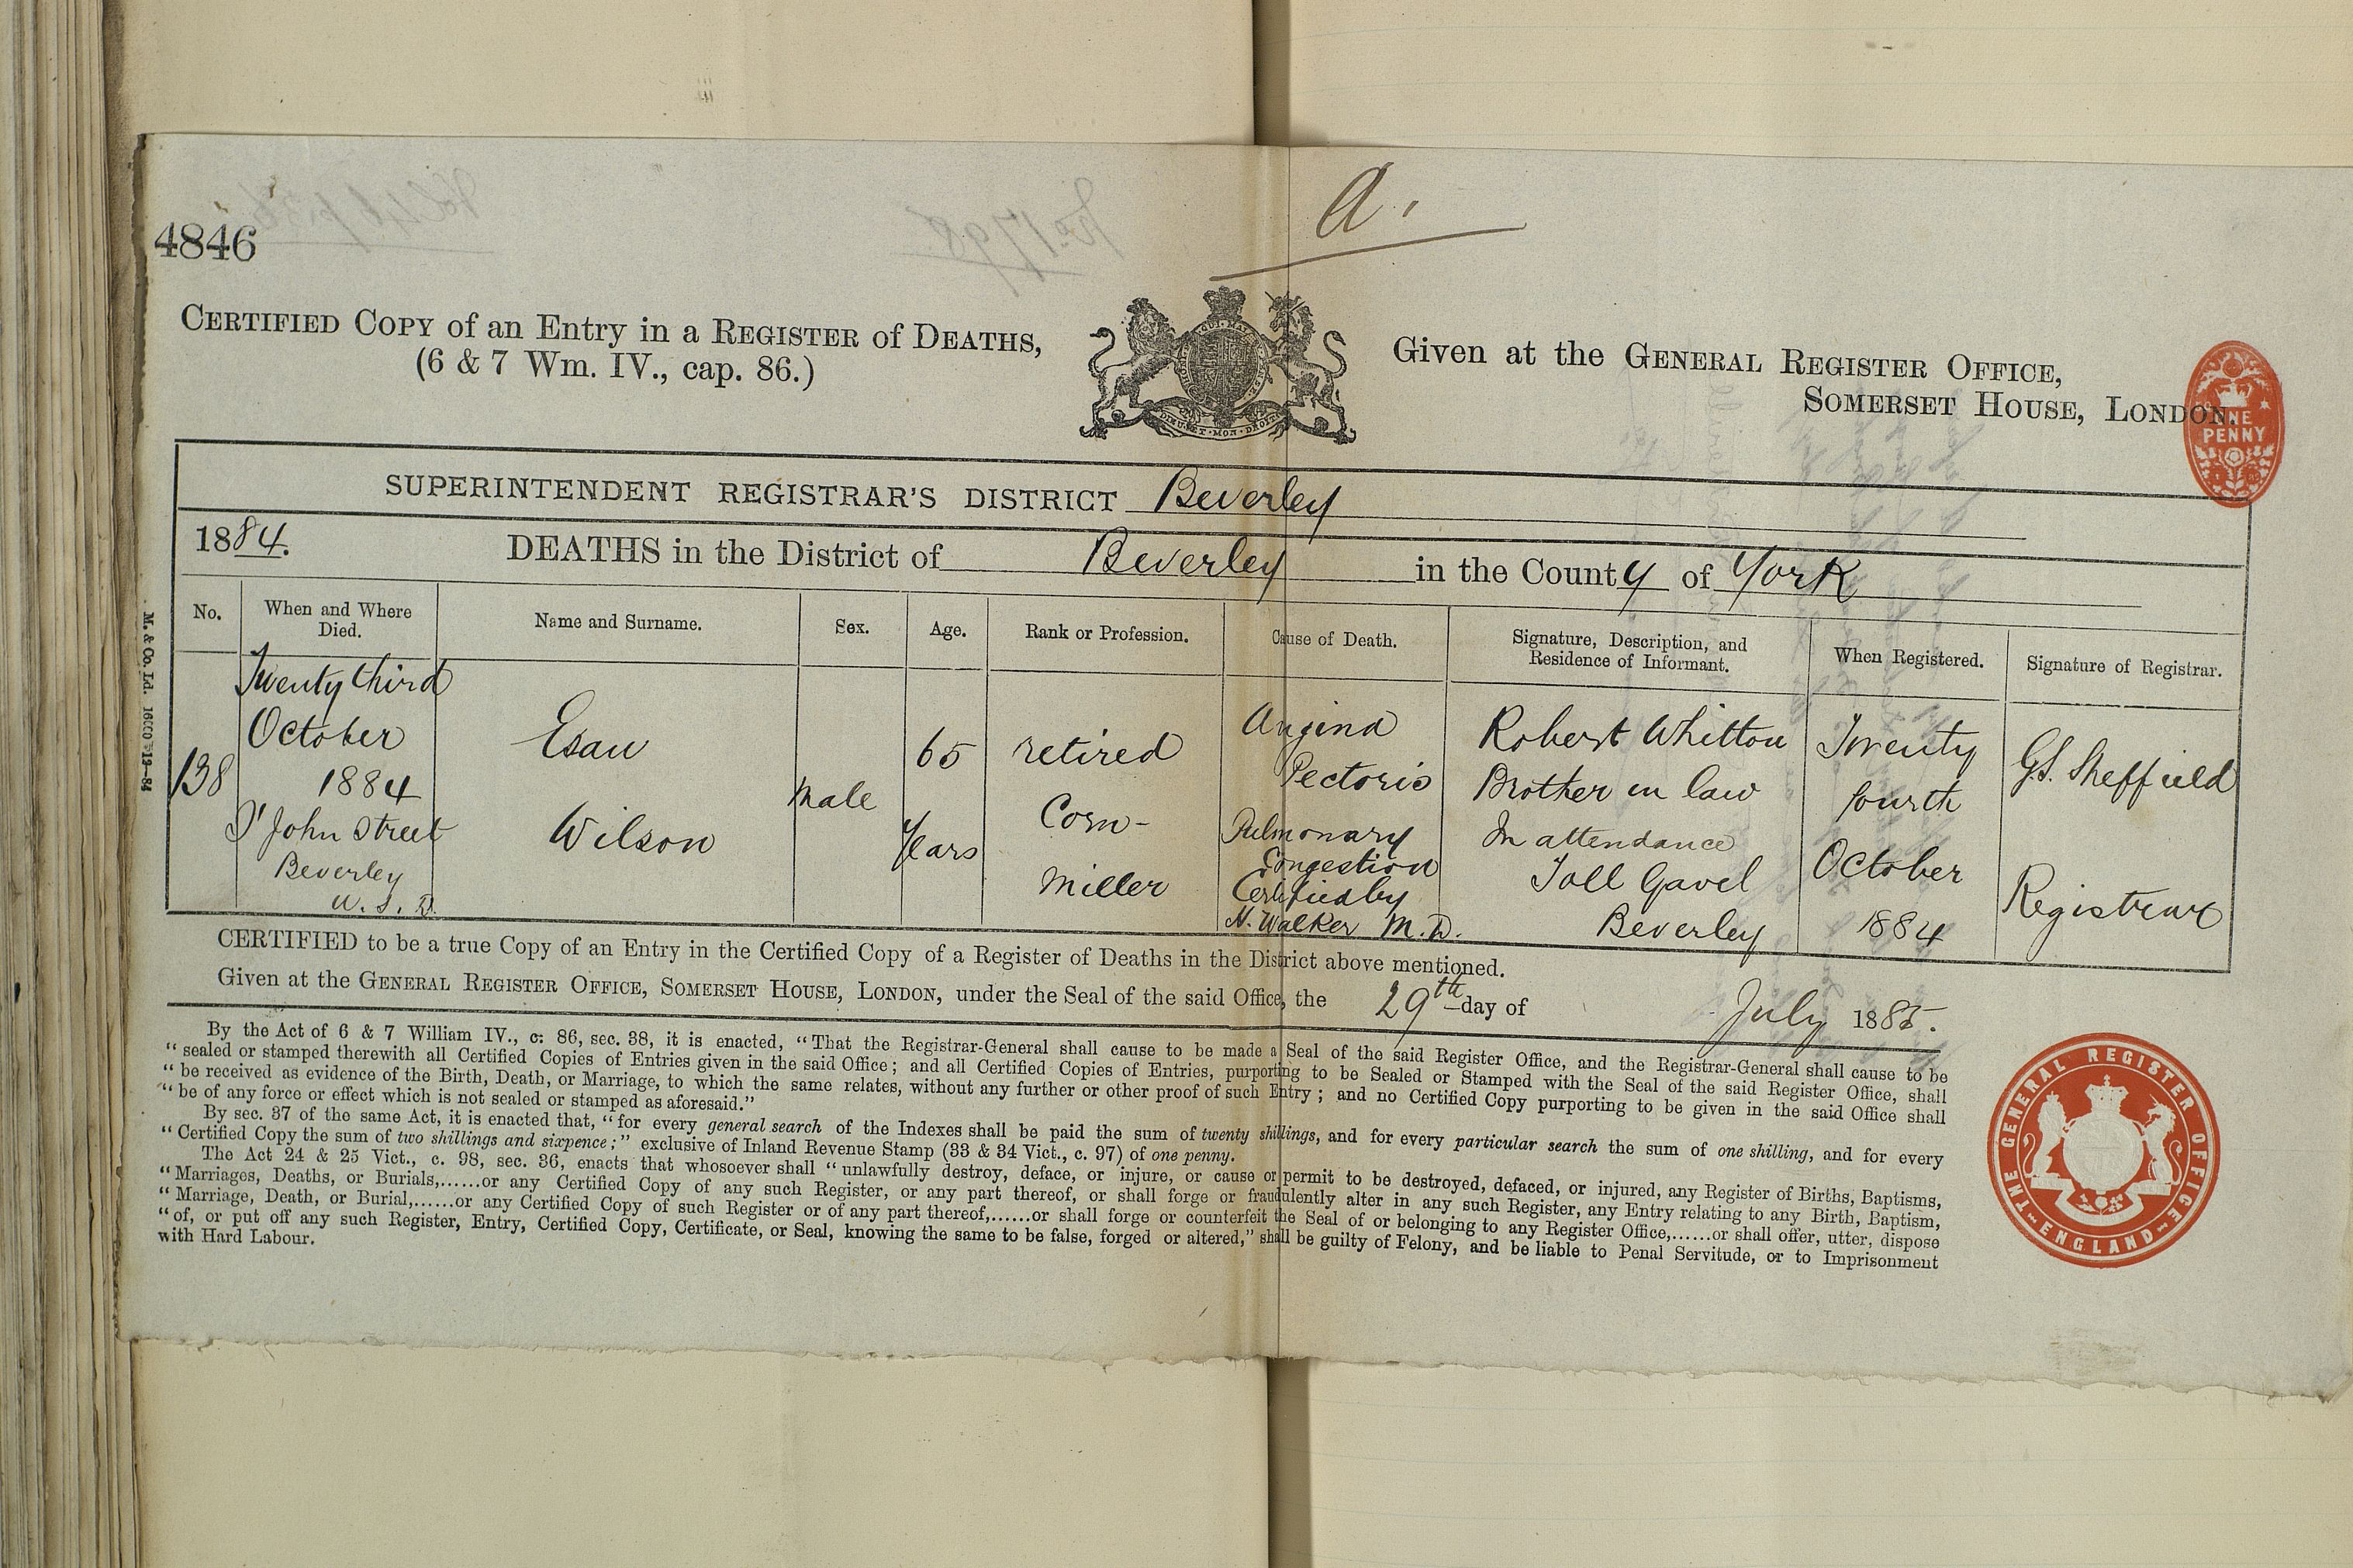 a.
4846
CERTIFIED COPY of an Entry in a REGISTER of DEATHS,
(6 & 7 Wm. IV., cap. 86.)
Given at the GENERAL REGISTER OFFICE,
SOMERSET HOUSE, LONDON.
ONE
PENNY
SUPERINTENDENT REGISTRAR'S DISTRICT Beverley
1884. DEATHS in the District of Beverley in the County of York
No.
When and Where
Died.
Name and Surname.
Sex.
Age.
Rank or Profession.
Cause of Death.
Signature, Description, and
Residence of Informant.
When Registered.
Signature of Registrar.
138
Twenty third
October
1884
St John Street
Beverley
U. S. D.
Esau
Wilson
Male
65
Years
retired
Corn-
Miller
Angina
Pectoris
Pulmonary
Congestion
Certified by
N. Walker M.D.
Robert Whitton
Brother in law
In attendance
Toll Gavel
Beverley
Twenty
fourth
October
1884
G.S. Sheffield
Registrar
CERTIFIED to be a true Copy of an Entry in the Certified Copy of a Register of Deaths in the District above mentioned.
Given at the GENERAL REGISTER OFFICE, SOMERSET HOUSE, LONDON, under the Seal of the said Office, the 29th day of July 1885.
By the Act of 6 & 7 William IV., c. 86, sec. 38, it is enacted, "That the Registrar-General shall cause to be made a Seal of the said Register Office, and the Registrar-General shall cause to be
"sealed or stamped therewith all Certified Copies of Entries given in the said Office; and all Certified Copies of Entries, purporting to be Sealed or Stamped with the Seal of the said Register Office, shall
"be received as evidence of the Birth, Death, or Marriage, to which the same relates, without any further or other proof of such Entry; and no Certified Copy purporting to be given in the said Office shall
"be of any force or effect which is not sealed or stamped as aforesaid."
By sec. 37 of the same Act, it is enacted that, "for every general search of the Indexes shall be paid the sum of twenty shillings, and for every particular search the sum of one shilling, and for every
"Certified Copy the sum of two shillings and sixpence;" exclusive of Inland Revenue Stamp (33 & 34 Vict., c. 97) of one penny.
The Act 24 & 25 Vict., c. 98, sec. 36, enacts that whosoever shall "unlawfully destroy, deface, or injure, or cause or permit to be destroyed, defaced, or injured, any Register of Births, Baptisms,
"Marriages, Deaths, or Burials,......or any Certified Copy of any such Register, or any part thereof, or shall forge or fraudulently alter in any such Register, any Entry relating to any Birth, Baptism,
"Marriage, Death, or Burial,......or any Certified Copy of such Register or of any part thereof,......or shall forge or counterfeit the Seal of or belonging to any Register Office,......or shall offer, utter, dispose
"of, or put off any such Register, Entry, Certified Copy, Certificate, or Seal, knowing the same to be false, forged or altered," shall be guilty of Felony, and be liable to Penal Servitude, or to Imprisonment
with Hard Labour.
THE GENERAL REGISTER OFFICE
ENGLAND